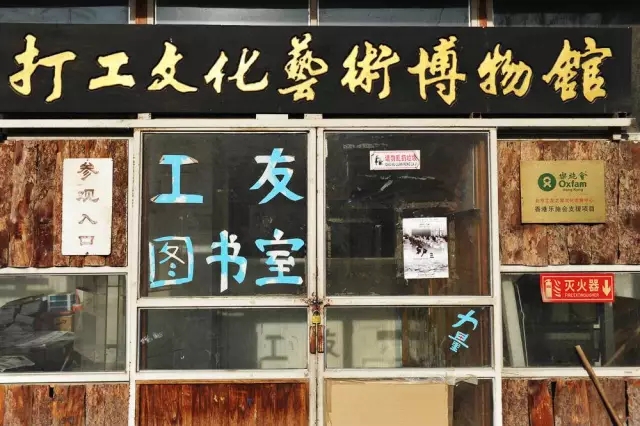 打工文化藝術博物館
参观入口
工友
图书室
请勿乱扔垃圾
乐施会
Oxfam
Hong Kong
香港乐施会支援项目
灭火器
FIRE EXTINGUISHER
力量